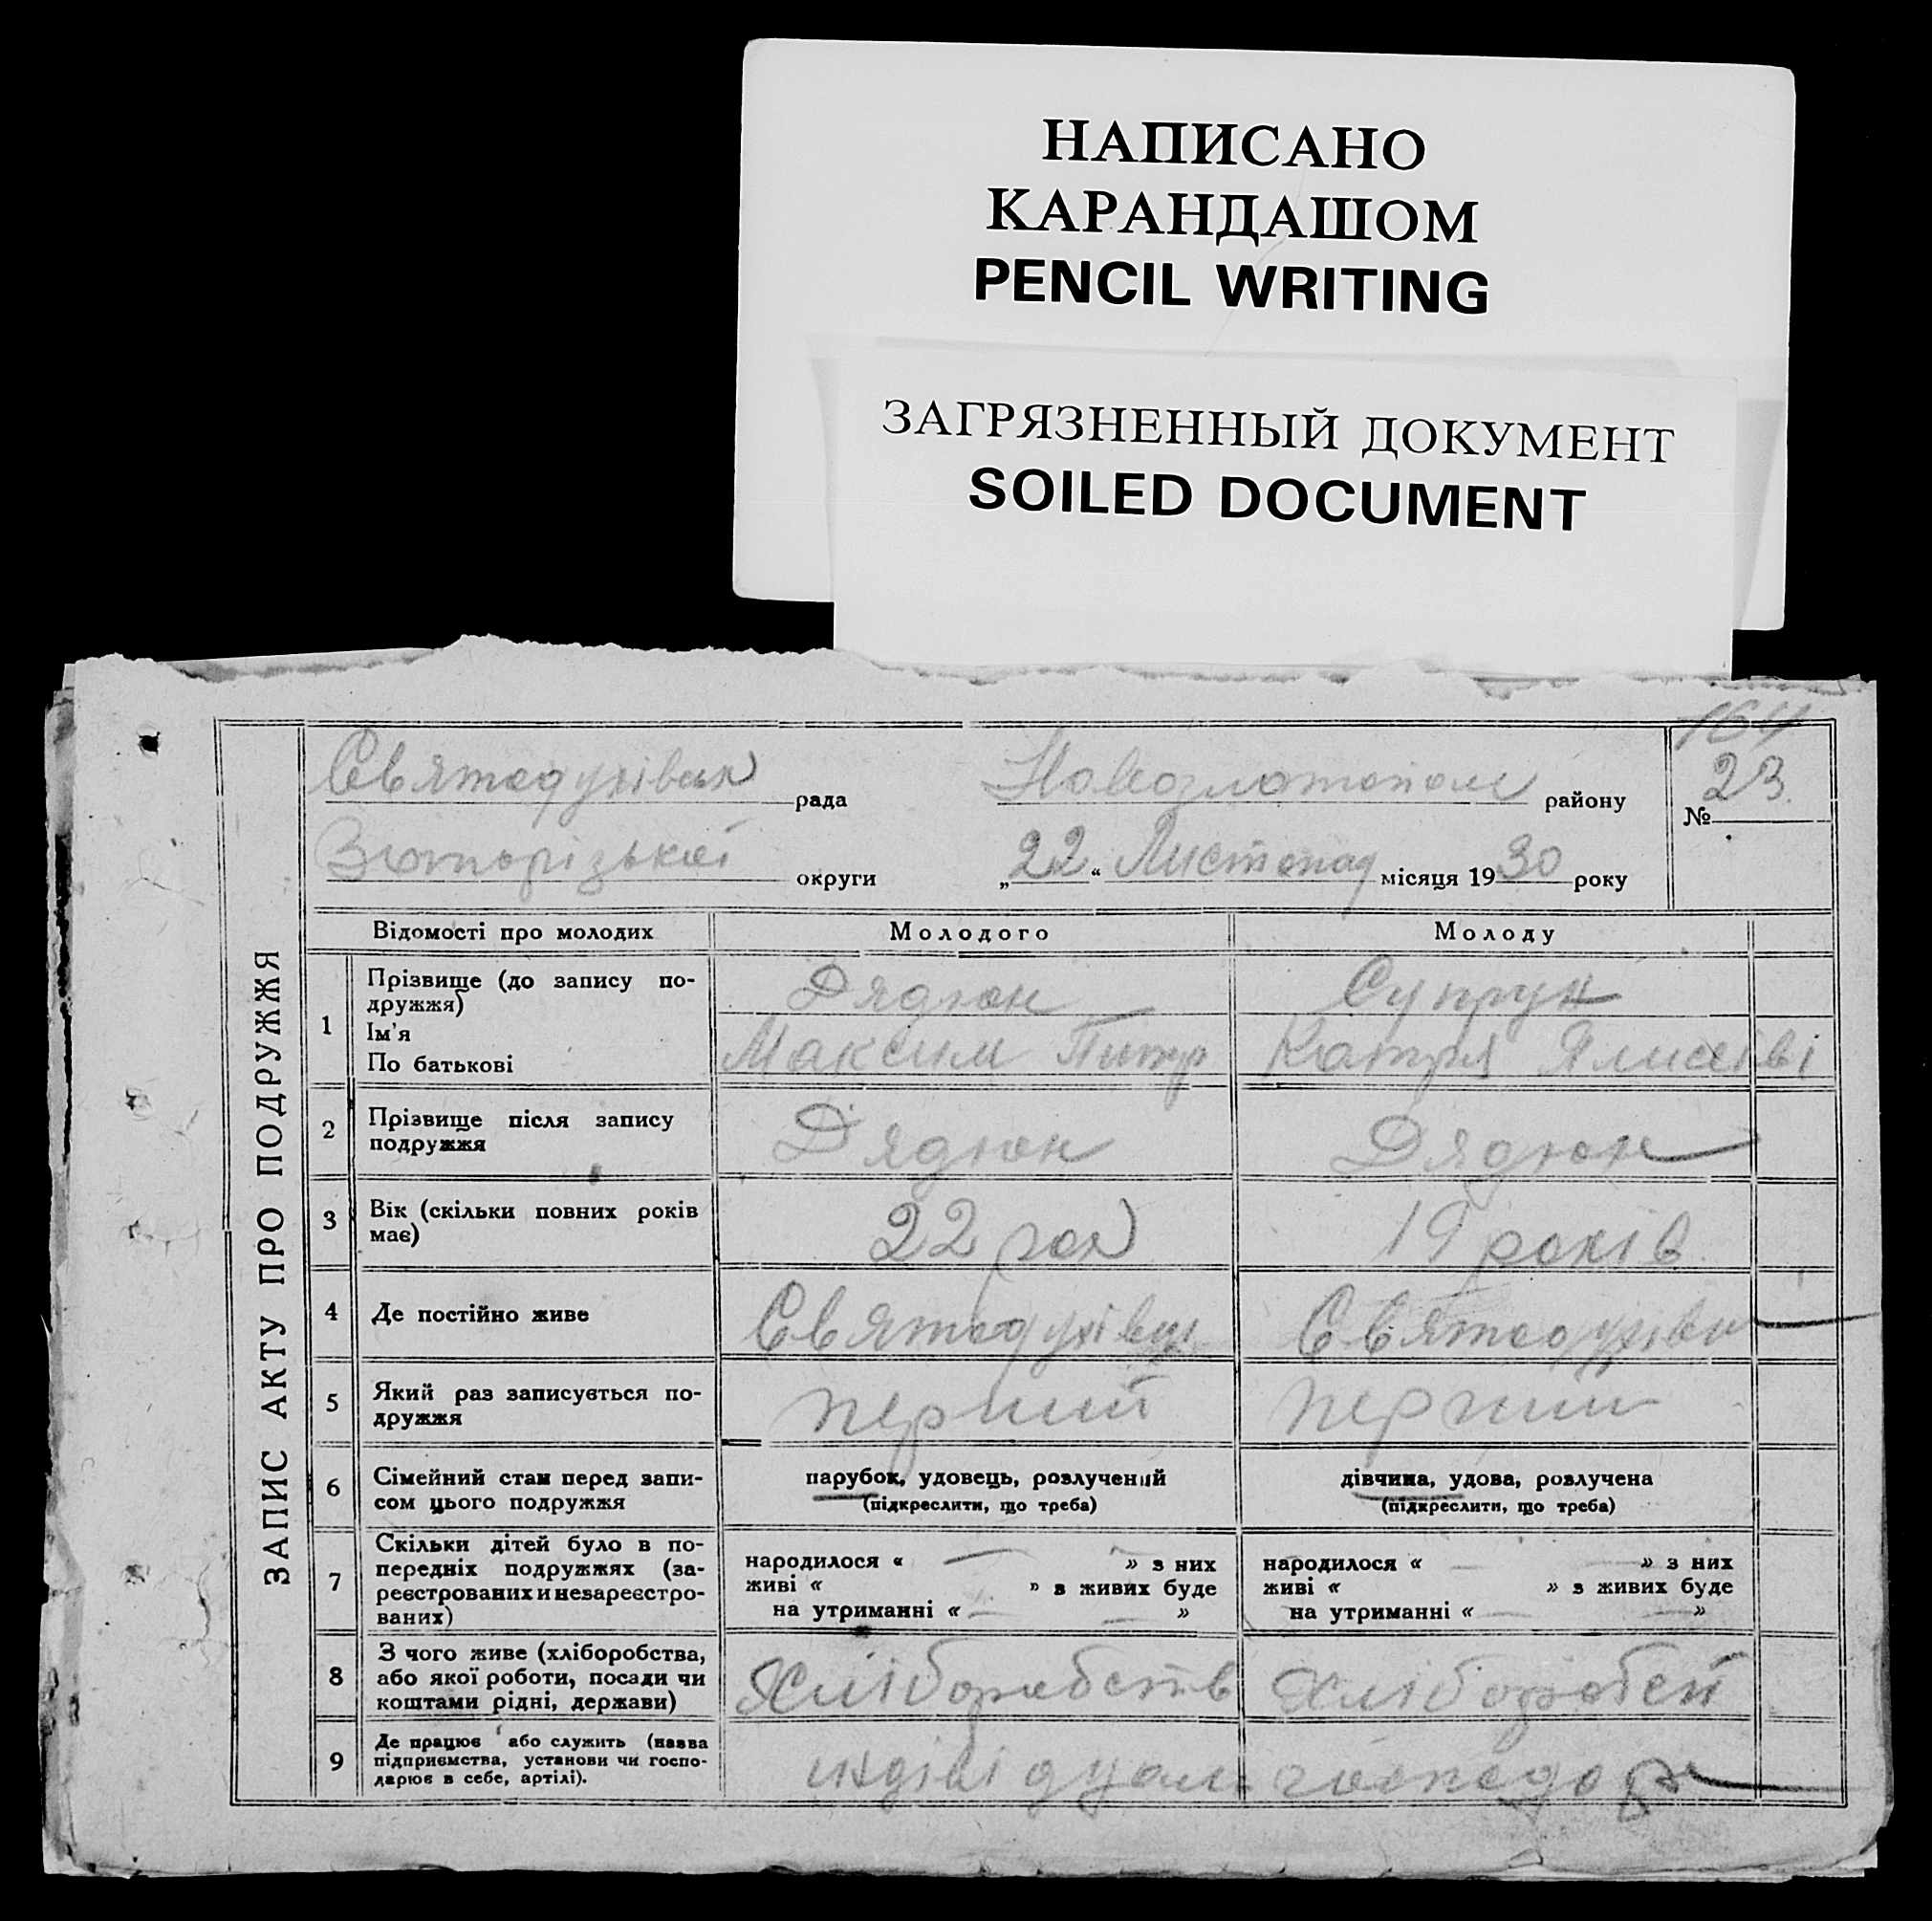 НАПИСАНО
КАРАНДАШОМ
PENCIL WRITING
ЗАГРЯЗНЕННЫЙ ДОКУМЕНТ
SOILED DOCUMENT
ЗАПИС АКТУ ПРО ПОДРУЖЖЯ
164
Святодухівськ рада Новозлатопол району № 23
Запорізької округи „22“ Листопад місяця 1930 року
Відомості про молодих Молодого Молоду
1 Прізвище (до запису по-
дружжя) Дядюн Супрун
Ім'я
По батькові Максим Питр Катря Ялисеїві
2 Прізвище після запису
подружжя Дядюн Дядюн
3 Вік (скільки повних років
має) 22 рок 19 років
4 Де постійно живе Святодухівці Святодухівк
5 Який раз записується по-
дружжя перший перший
6 Сімейний стан перед запи-
сом цього подружжя
парубок, удовець, розлучений
(підкреслити, що треба)
дівчина, удова, розлучена
(підкреслити, що треба)
7 Скільки дітей було в по-
передніх подружжях (за-
реєстрованих и незареєстро-
ваних)
народилося « — » з них
живі « » з живих буде
на утриманні « — »
народилося « — » з них
живі « » з живих буде
на утриманні « — »
8 З чого живе (хліборобства,
або якої роботи, посади чи
коштами рідні, держави)
Хліборобств Хліборобст
9 Де працює або служить (назва
підприємства, установи чи госпо-
дарює в себе, артілі).
індівідуаль господар